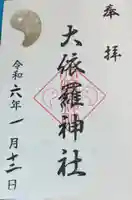 奉拝
大依羅神社
令和六年一月十三日